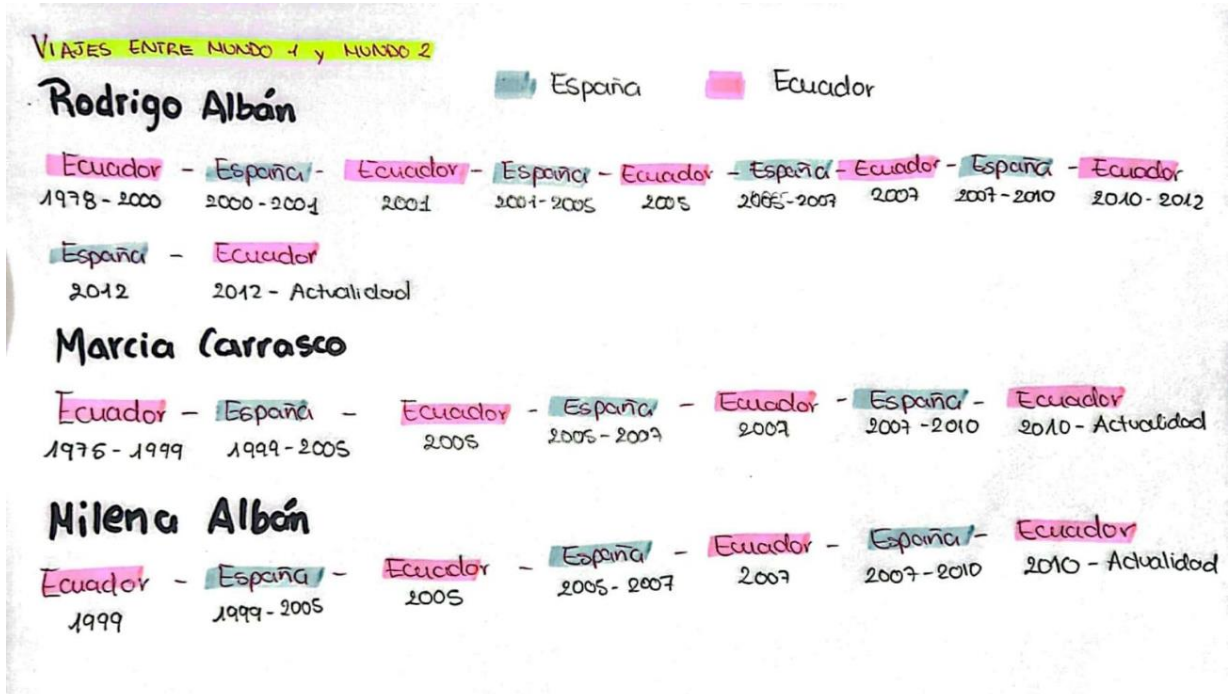 VIAJES ENTRE MUNDO 1 y MUNDO 2
España Ecuador
Rodrigo Albán
Ecuador - España - Ecuador - España - Ecuador - España - Ecuador - España - Ecuador
1978-2000 2000-2001 2001 2001-2005 2005 2005-2007 2007 2007-2010 2010-2012
España - Ecuador
2012 2012 - Actualidad
Marcia Carrasco
Ecuador - España - Ecuador - España - Ecuador - España - Ecuador
1976-1999 1999-2005 2005 2005-2007 2007 2007-2010 2010-Actualidad
Milena Albán
Ecuador - España - Ecuador - España - Ecuador - España - Ecuador
1999 1999-2005 2005 2005-2007 2007 2007-2010 2010 - Actualidad